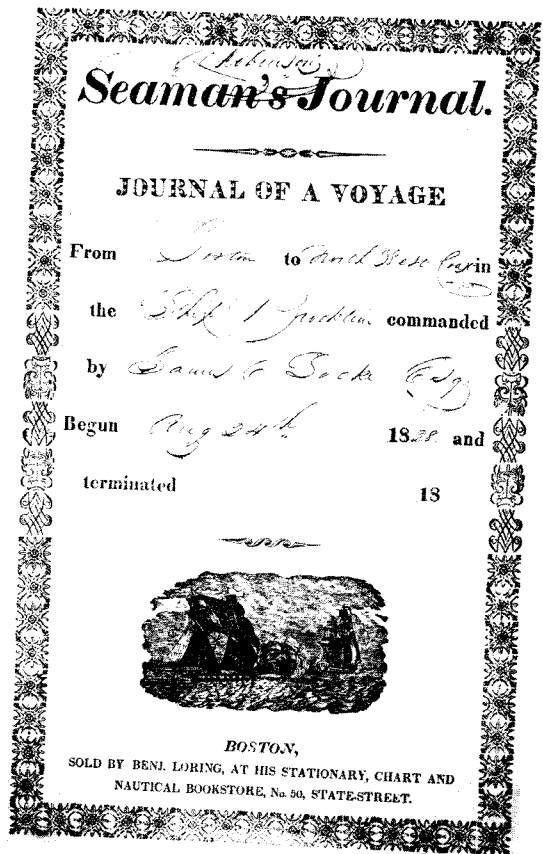 Seaman's Journal.
JOURNAL OF A VOYAGE
From Boston to North West in
the Ship commanded
by Esq
Begun Aug 24th 1828 and
terminated 18
BOSTON,
SOLD BY BENJ. LORING, AT HIS STATIONARY, CHART AND
NAUTICAL BOOKSTORE, No. 50, STATE-STREET.